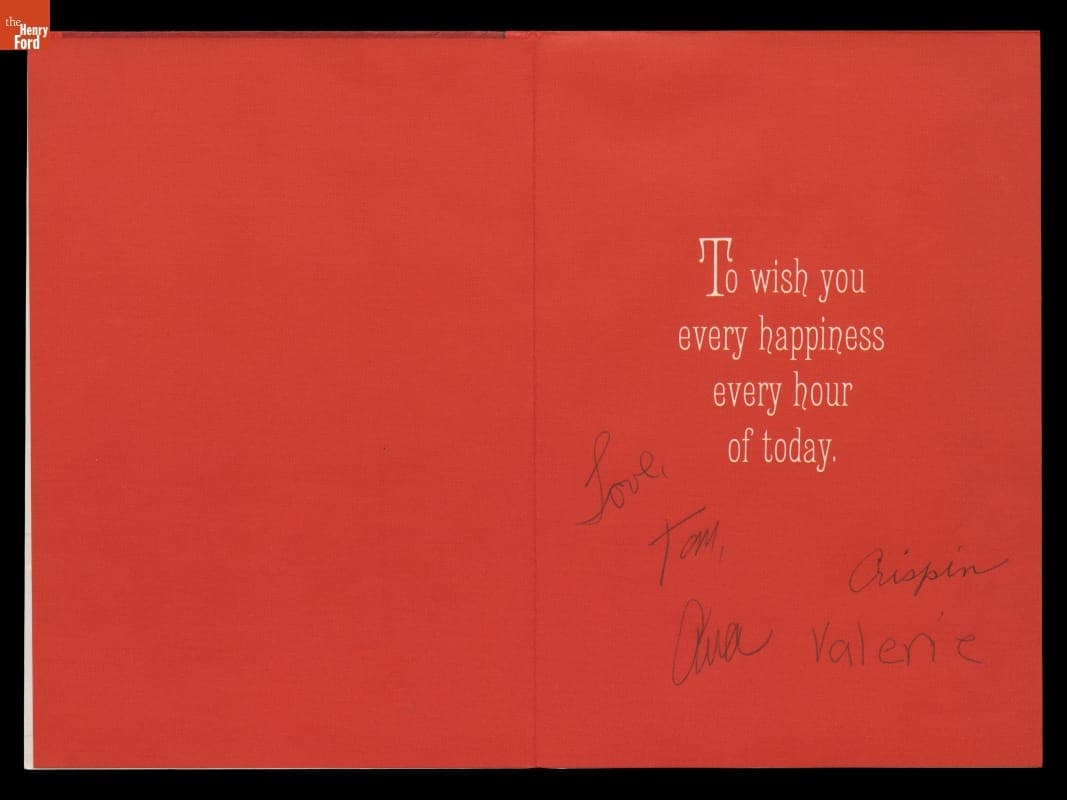 the
Henry
Ford
To wish you
every happiness
every hour
of today.
Love,
Tom,
Crispin
Ana
Valerie